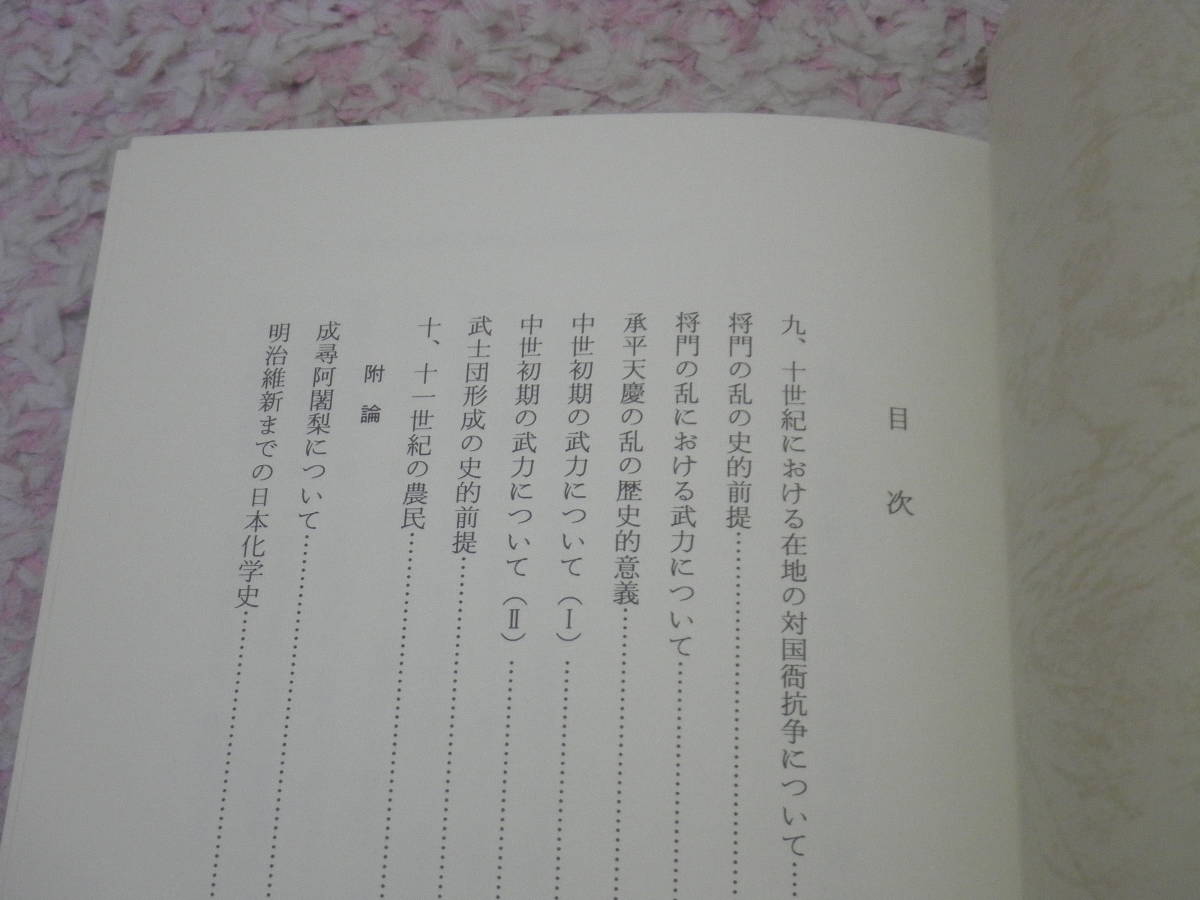 目次
九、十世紀における在地の対国衙抗争について……
将門の乱の史的前提……
将門の乱における武力について……
承平天慶の乱の歴史的意義……
中世初期の武力について（Ⅰ）……
中世初期の武力について（Ⅱ）……
武士団形成の史的前提……
十、十一世紀の農民……
附論
成尋阿闍梨について……
明治維新までの日本化学史……